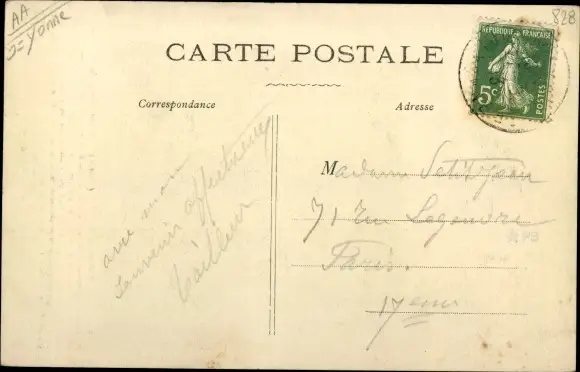 AA
Yonne
828
CARTE POSTALE
RÉPUBLIQUE FRANÇAISE
5c
POSTES
Correspondance
Adresse
avec mon
souvenir affectueux
Madame
71 Rue Legendre
Paris.
17eme